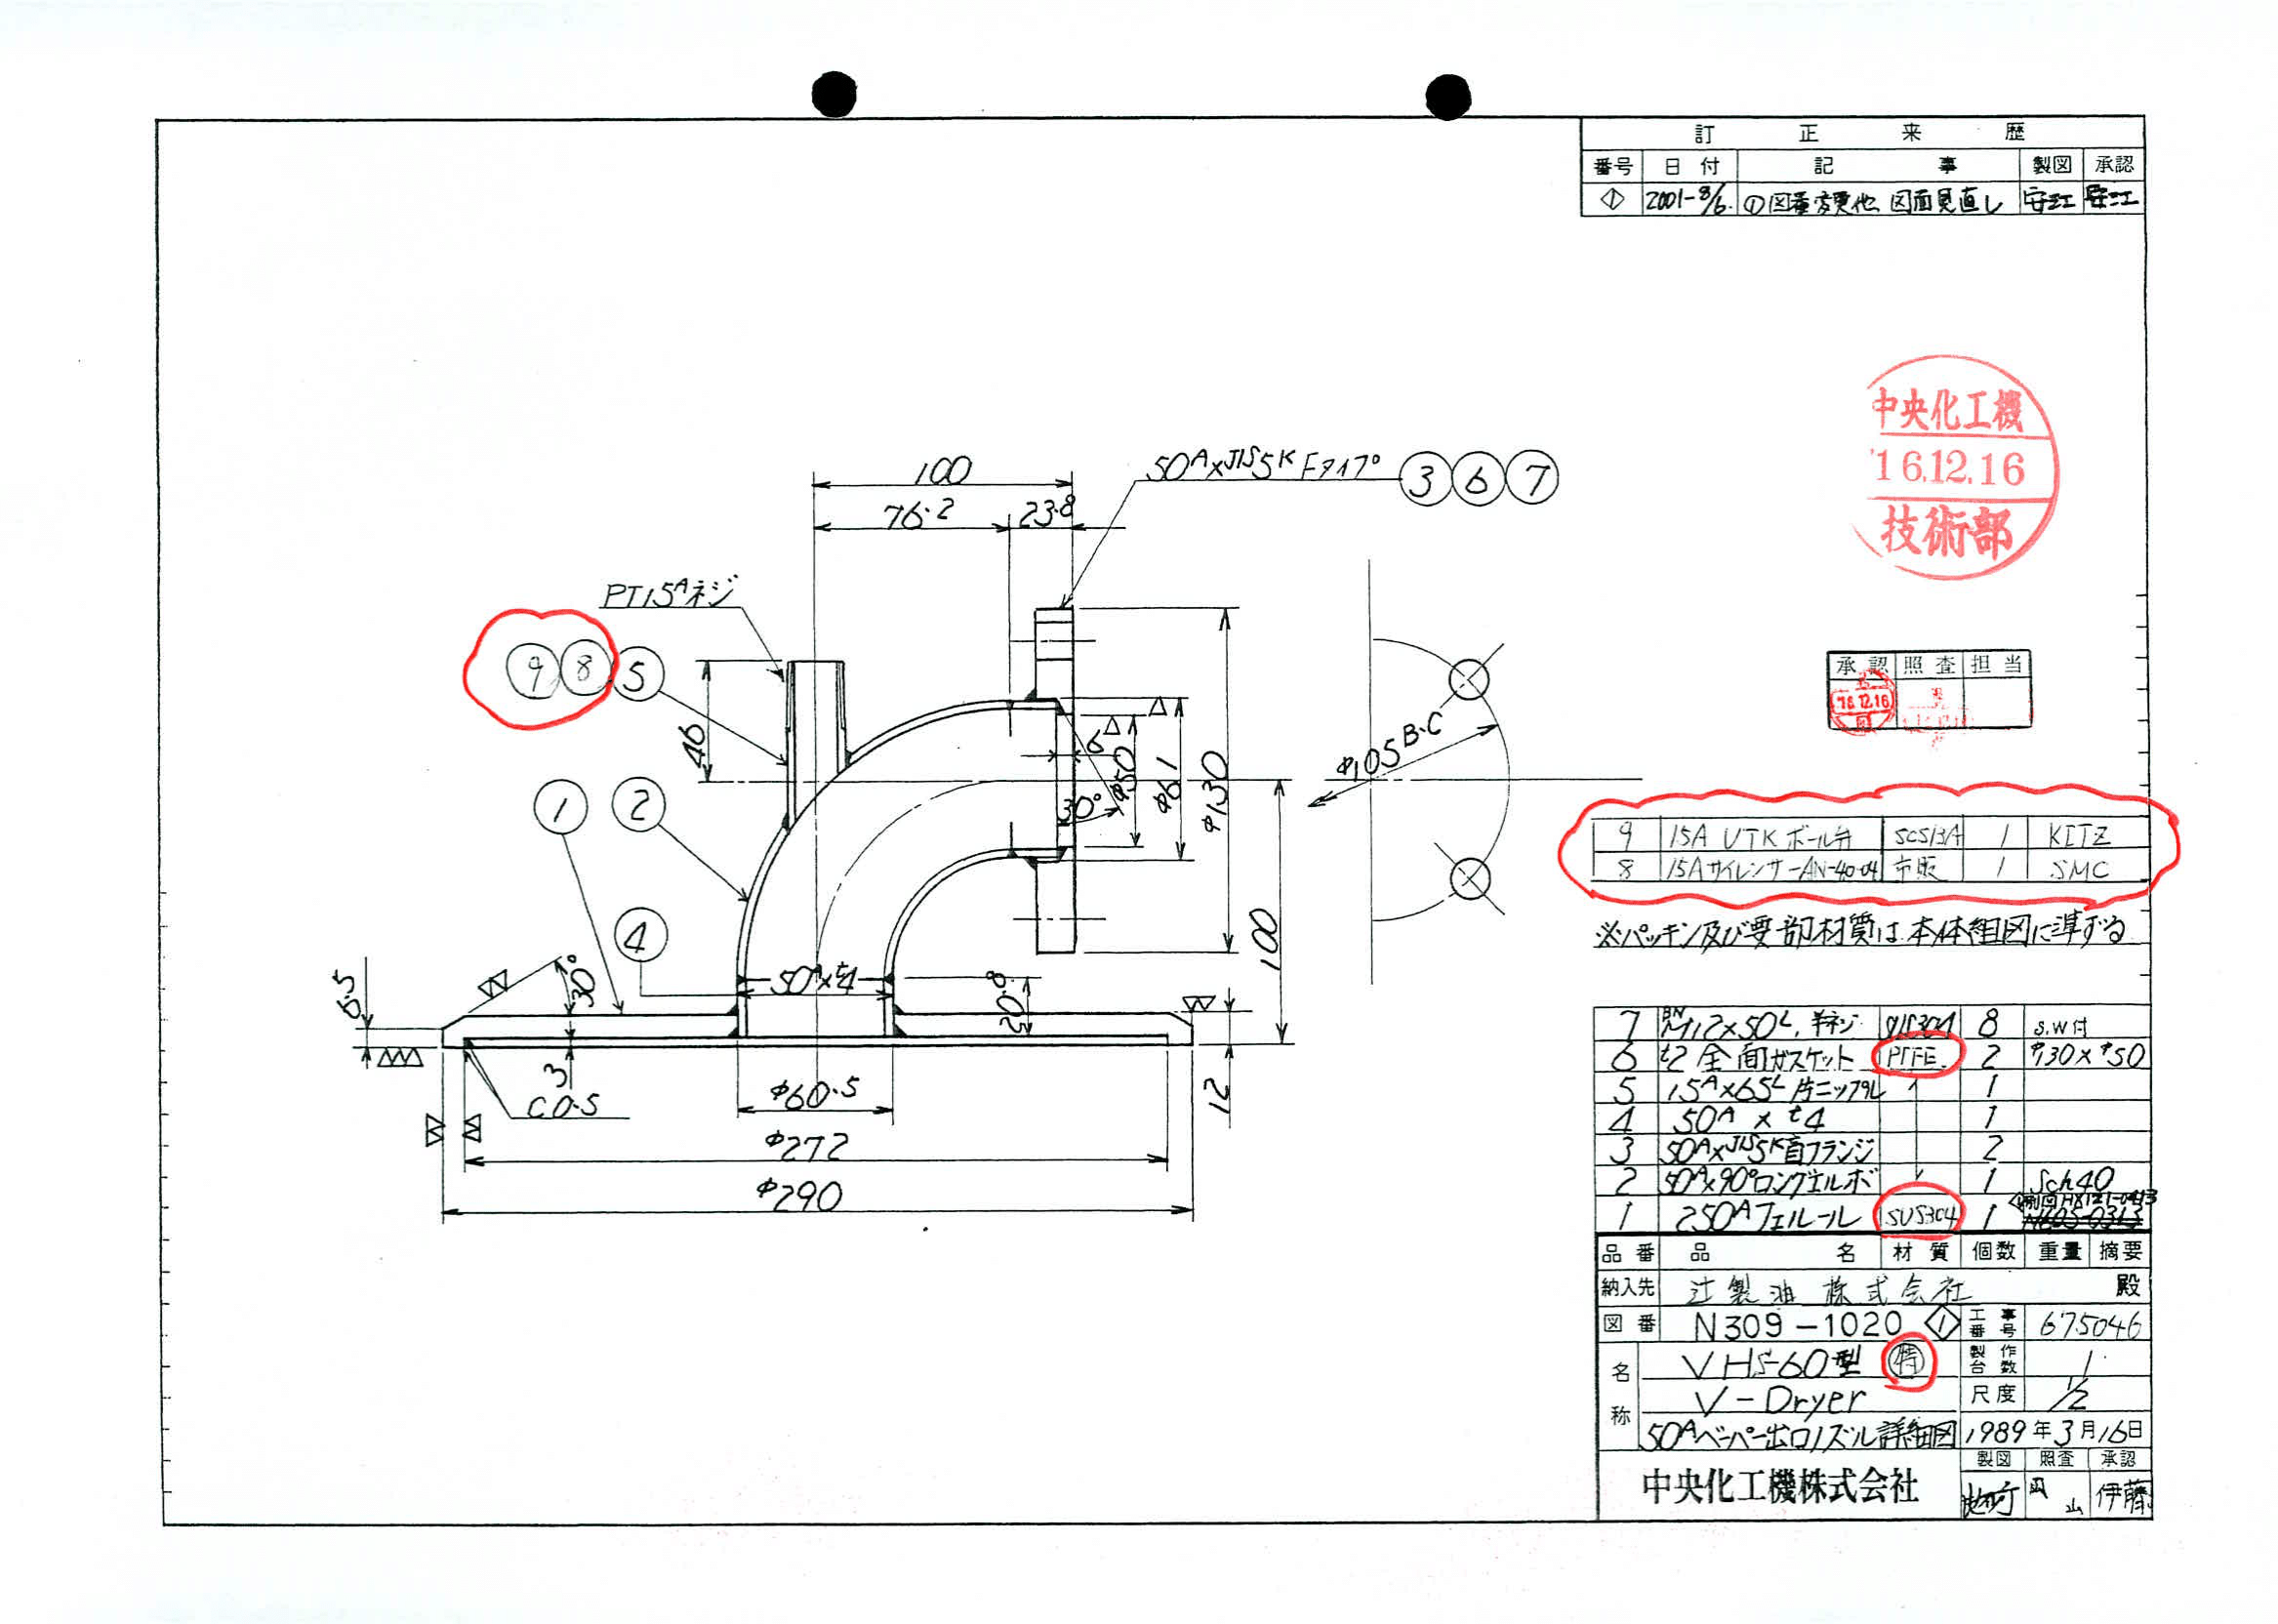 訂正来歴
番号 日付 記事 製図 承認
1 2001-8/6 ①図番変更他 図面見直し 安江 安江
中央化工機
'16.12.16
技術部
承認 照査 担当
'16.12.16
100
50A×JIS5K Fタイプ 3 6 7
76.2 23.8
PT15Aネジ
9 8 5
46
1 2
6
30°
φ50
φ61
φ130
φ105 B.C
4
50A×t4
100
5.5
30°
20.8
3
C0.5
φ60.5
12
φ272
φ290
9 15A UTKボール弁 SCS13A 1 KITZ
8 15Aサイレンサー AN-40-04 市販 1 SMC
※パッキン及び要部材質は本体組図に準ずる
7 BN M12×50L, 半ネジ SUS304 8 S.W付
6 t2 全面ガスケット PTFE 2 φ130×φ50
5 15A×65L 片ニップル 1
4 50A × t4 1
3 50A×JIS5K盲フランジ 2
2 50A×90°ロングエルボ 1 Sch40
1 250Aフェルール SUS304 1
品番 品名 材質 個数 重量 摘要
納入先 辻製油株式会社 殿
図番 N309-1020 1 工事番号 675046
名称 VHS-60型 特 製作台数 1
V-Dryer 尺度 1/2
50Aベーパー出口ノズル詳細図 1989年3月16日
製図 照査 承認
中央化工機株式会社 伊藤